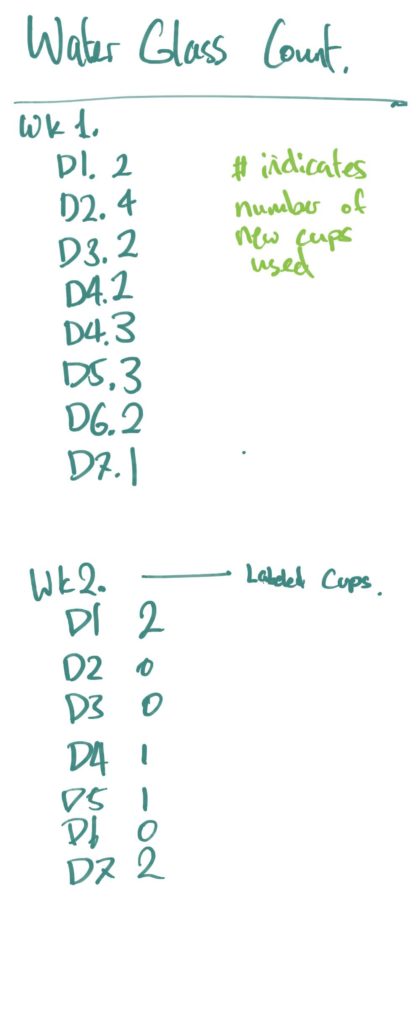 Water Glass Count.
Wk 1.
D1. 2
# indicates
D2. 4
number of
D3. 2
new cups
used
D4. 2
D4. 3
D5. 3
D6. 2
D7. 1
Wk2. Labeled Cups.
D1 2
D2 0
D3 0
D4 1
D5 1
D6 0
D7 2